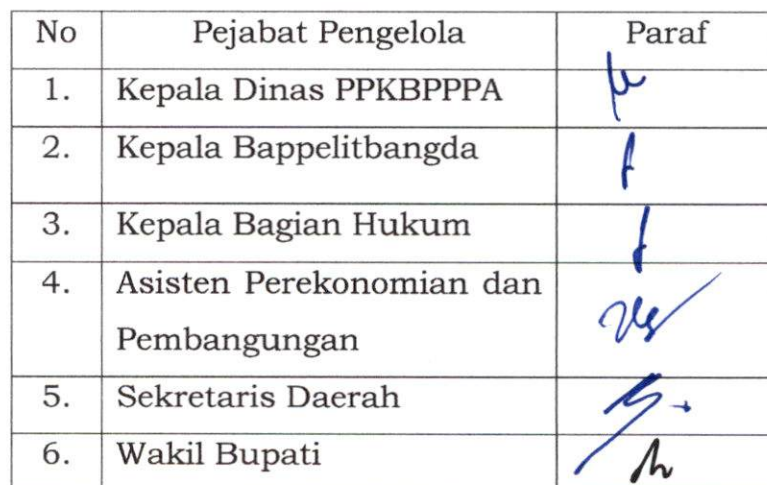 No Pejabat Pengelola Paraf
1. Kepala Dinas PPKBPPPA
2. Kepala Bappelitbangda
3. Kepala Bagian Hukum
4. Asisten Perekonomian dan
Pembangungan
5. Sekretaris Daerah
6. Wakil Bupati